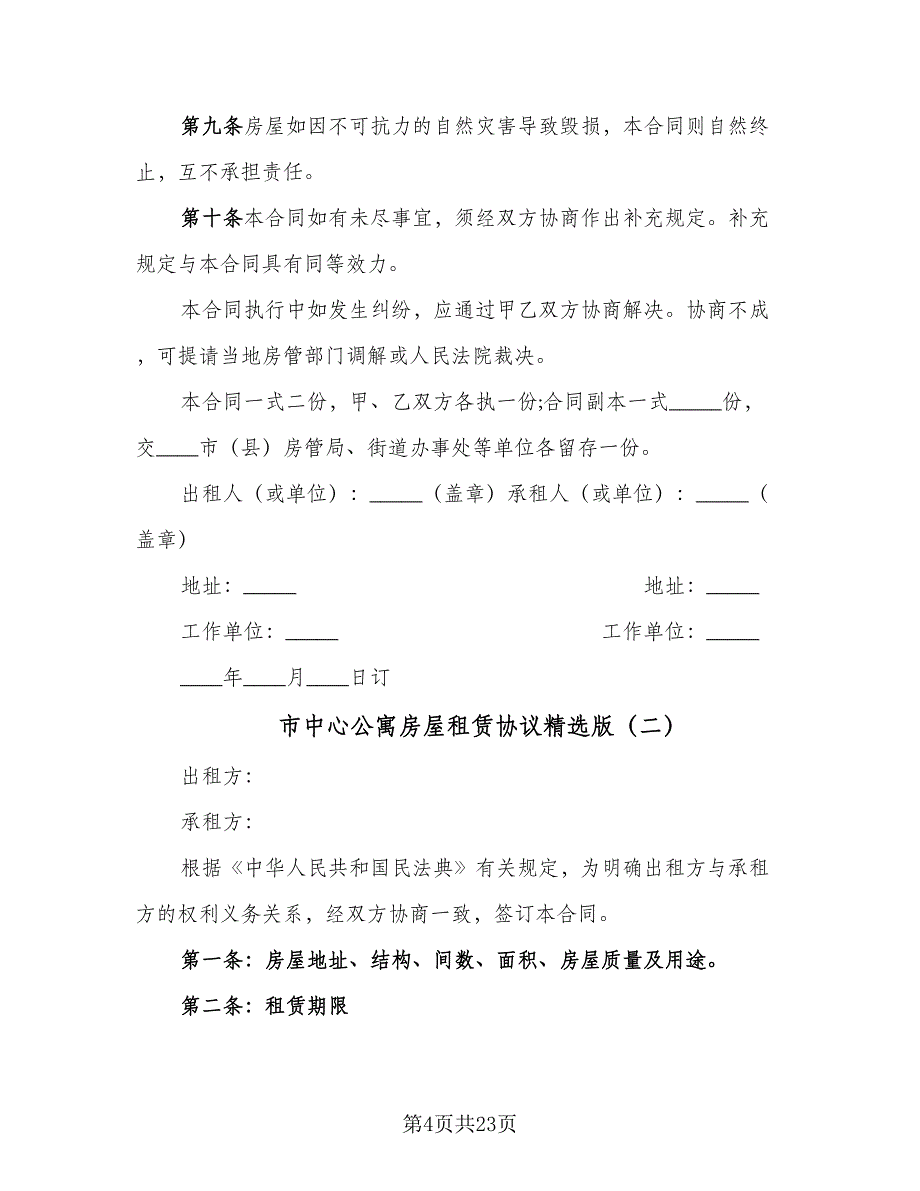 第九条房屋如因不可抗力的自然灾害导致毁损，本合同则自然终
止，互不承担责任。
第十条本合同如有未尽事宜，须经双方协商作出补充规定。补充
规定与本合同具有同等效力。
本合同执行中如发生纠纷，应通过甲乙双方协商解决。协商不成
，可提请当地房管部门调解或人民法院裁决。
本合同一式二份，甲、乙双方各执一份;合同副本一式_____份，
交____市（县）房管局、街道办事处等单位各留存一份。
出租人（或单位）：_____（盖章）承租人（或单位）：_____（
盖章）
地址：_____ 地址：_____
工作单位：_____ 工作单位：_____
____年____月____日订
市中心公寓房屋租赁协议精选版（二）
出租方：
承租方：
根据《中华人民共和国民法典》有关规定，为明确出租方与承租
方的权利义务关系，经双方协商一致，签订本合同。
第一条：房屋地址、结构、间数、面积、房屋质量及用途。
第二条：租赁期限
第4页共23页